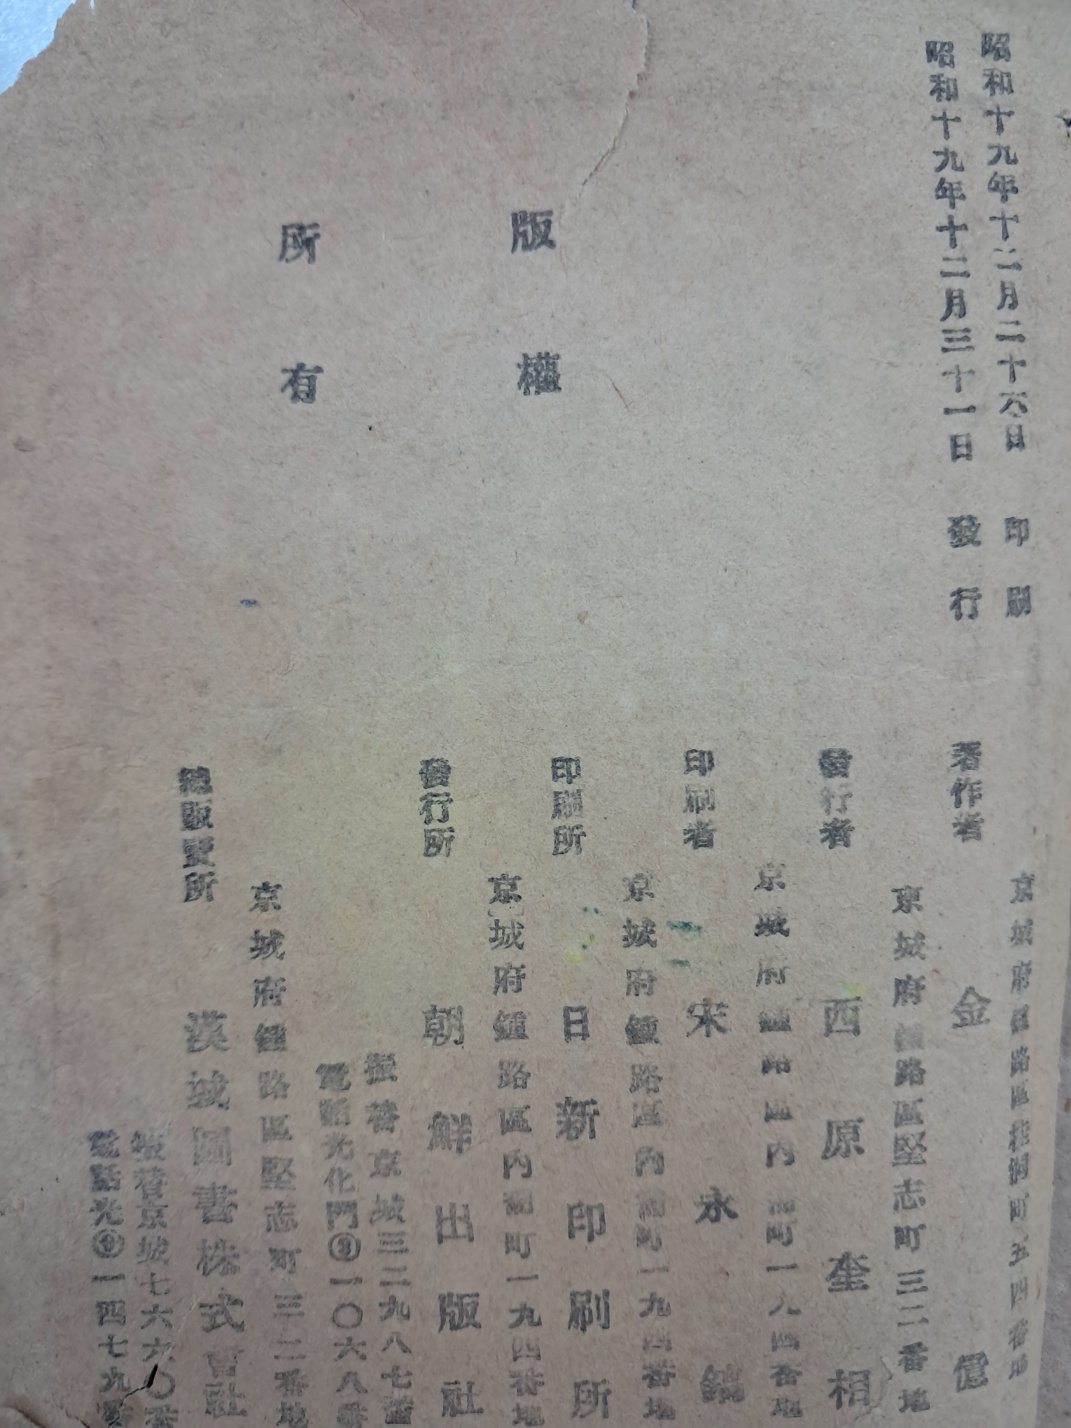 昭和十九年十二月二十六日 印刷
昭和十九年十二月三十一日 發行
版權
所有
京城府 路區 町五四番地
著作者 金 億
京城府鍾路區堅志町三二番地
發行者 西原奎相
京城府鍾路區内 町一九四番地
印刷者 宋永鎬
京城府鍾路區内 町一九四番地
印刷所 日新印刷所
京城府鍾路區内 町一九四番地
發行所 朝鮮出版社
振替京城三二九八七番
電話光化門③一〇六八番
京城府鍾路區堅志町三二番地
總販賣所 漢城圖書株式會社
振替京城七六六〇番
電話光③一四七九番